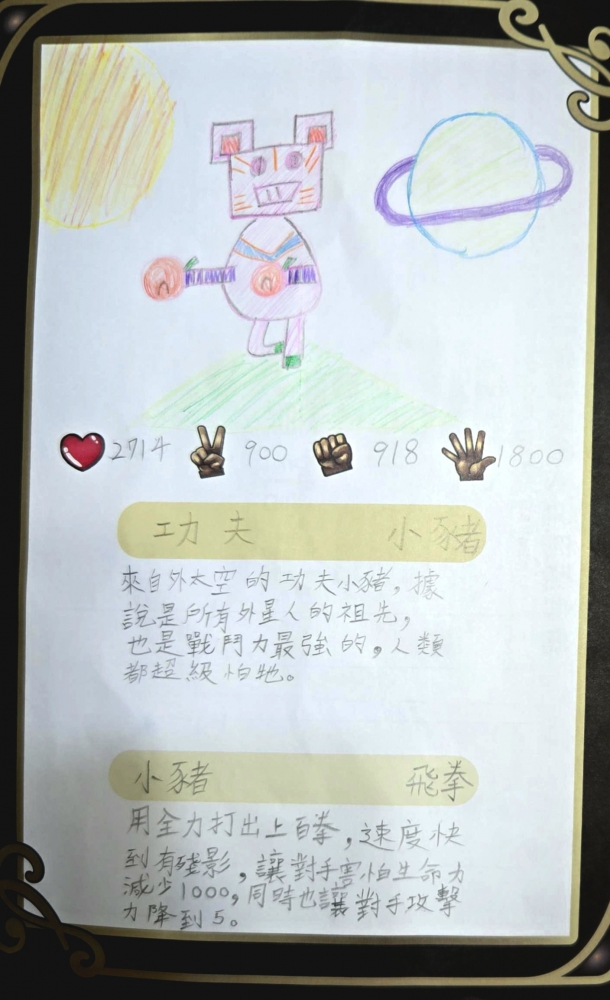 2714 900 918 1800
功夫 小豬
來自外太空的功夫小豬，據
說是所有外星人的祖先，
也是戰鬥力最強的。人類
都超級怕牠。
小豬 飛拳
用全力打出上百拳，速度快
到有殘影，讓對手害怕生命力
減少1000，同時也讓對手攻擊
力降到5。